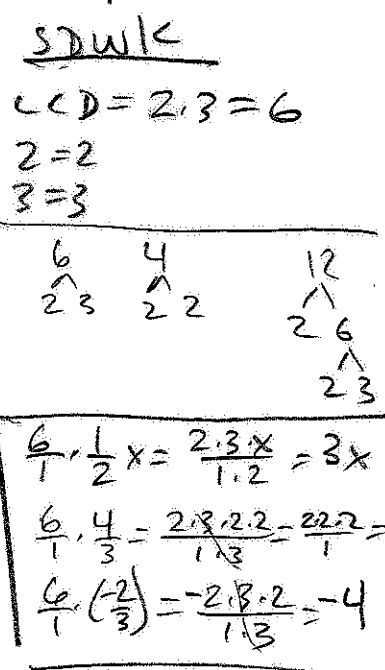 SDWK
LCD = 2·3 = 6
2 = 2
3 = 3
6 4 12
2 3 2 2 2 6
2 3
6/1 · 1/2 x = 2·3·x/1·2 = 3x
6/1 · 4/3 = 2·3·2·2/1·3 = 2·2·2/1 =
6/1 · (-2/3) = -2·3·2/1·3 = -4